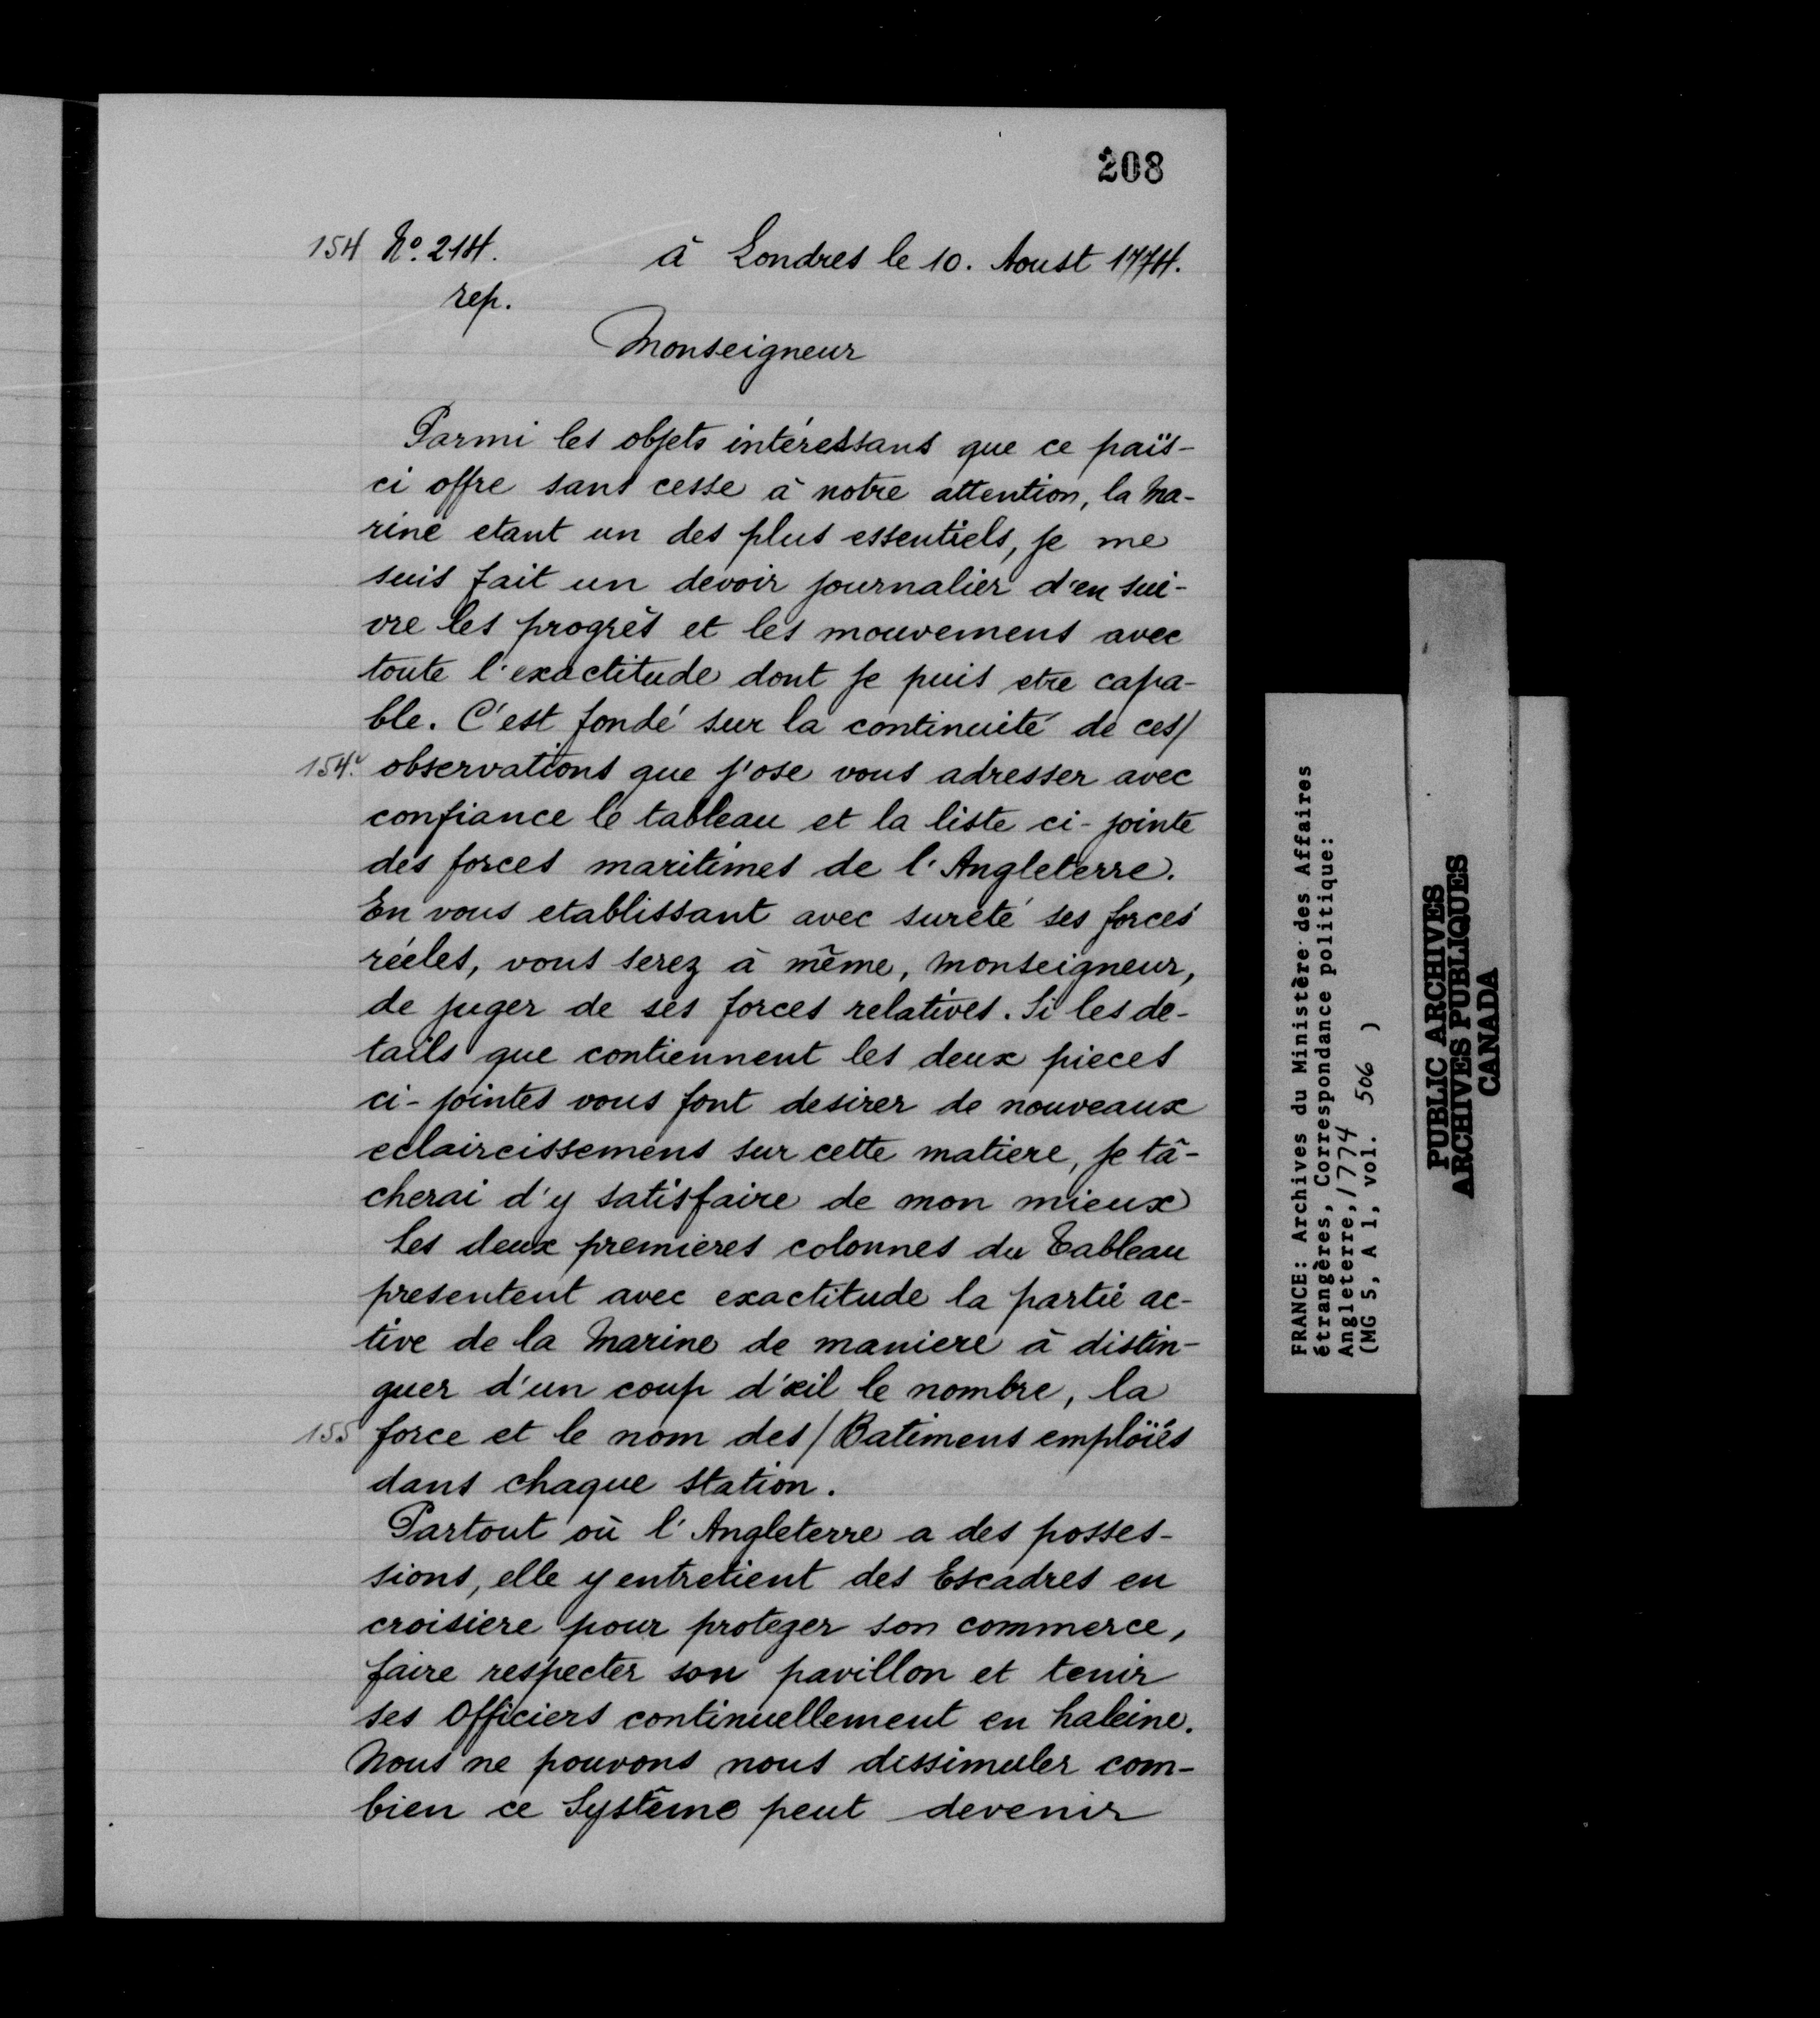 208
154 No. 214. à Londres le 10. Aoust 1774.
rep.
Monseigneur
Parmi les objets intéressans que ce païs-
ci offre sans cesse à notre attention, la Ma-
rine etant un des plus essentiels, je me
suis fait un devoir journalier d'en sui-
vre les progrès et les mouvemens avec
toute l'exactitude dont je puis etre capa-
ble. C'est fondé sur la continuité de ces/
154.v observations que j'ose vous adresser avec
confiance le tableau et la liste ci-jointe
des forces maritimes de l'Angleterre.
En vous etablissant avec sureté ses forces
réeles, vous serez à même, Monseigneur,
de juger de ses forces relatives. Si les de-
tails que contiennent les deux pieces
ci-jointes vous font desirer de nouveaux
eclaircissemens sur cette matiere, je tâ-
cherai d'y satisfaire de mon mieux
Les deux premieres colonnes du Tableau
presentent avec exactitude la partie ac-
tive de la Marine de maniere à distin-
guer d'un coup d'œil le nombre, la
155 force et le nom des/Batimens emploïés
dans chaque station.
Partout où l'Angleterre a des posses-
sions, elle y entretient des Escadres en
croisiere pour proteger son commerce,
faire respecter son pavillon et tenir
ses Officiers continuellement en haleine.
Nous ne pouvons nous dissimuler com-
bien ce Système peut devenir
FRANCE: Archives du Ministère des Affaires
étrangères, Correspondance politique:
Angleterre, 1774
(MG 5, A 1, vol. 506 )
PUBLIC ARCHIVES
ARCHIVES PUBLIQUES
CANADA